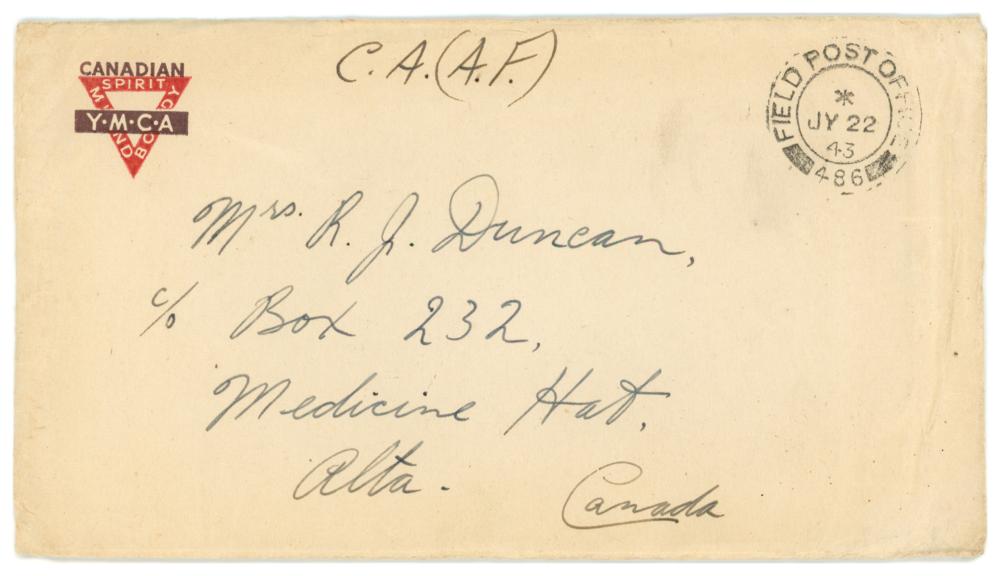 C.A.(A.F.)
CANADIAN
SPIRIT
MIND
BODY
Y·M·C·A
FIELD POST OFFICE
*
JY 22
43
486
Mrs. R. J. Duncan,
c/o Box 232,
Medicine Hat,
Alta.
Canada